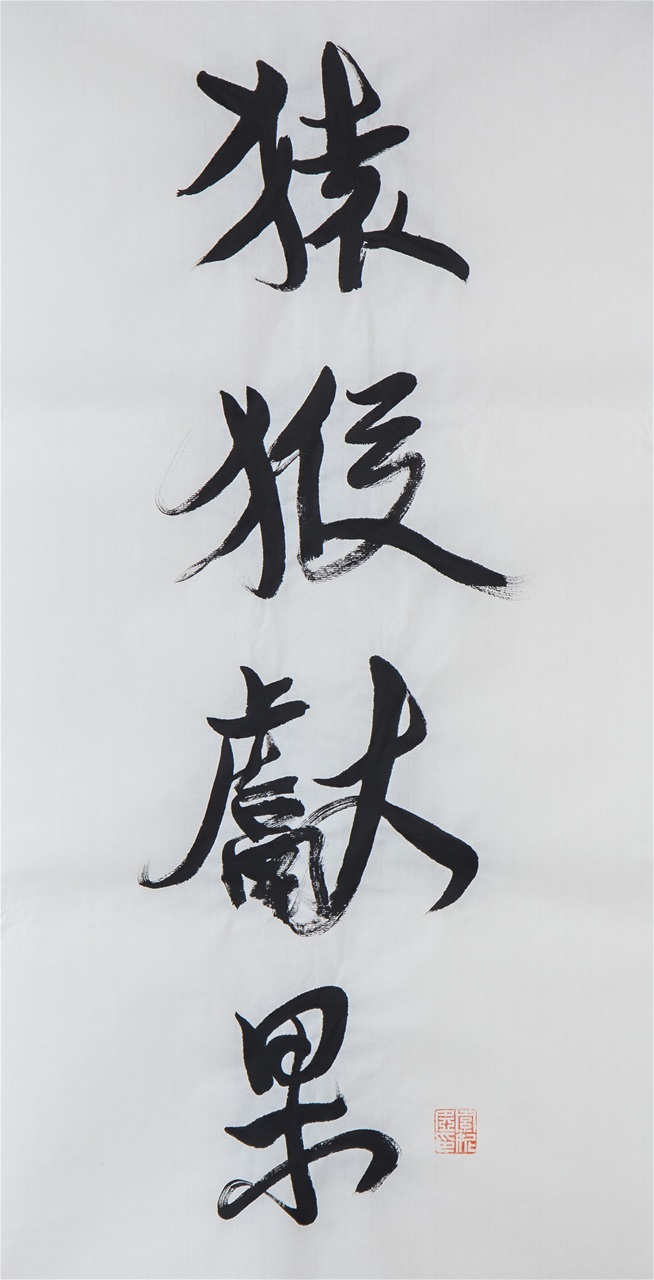 猿猴獻果